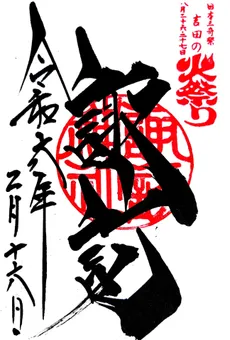 日本三奇祭
八月二十六、二十七日
吉田の
火祭り
諏訪宮
令和六年
二月十六日